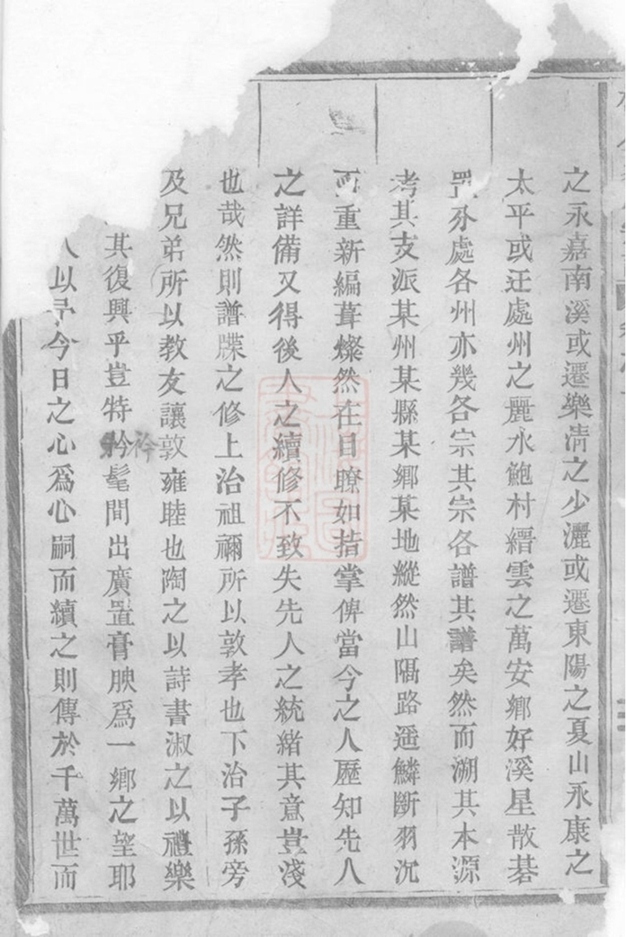 之永嘉南溪或遷樂淸之少灑或遷東陽之夏山永康之
太平或迁處州之麗水鮑村縉雲之萬安鄉好溪星散碁
置分處各州亦幾各宗其宗各譜其譜矣然而溯其本源
考其支派某州某縣某鄉某地縱然山隔路遥鱗斷羽沉
而重新編葺燦然在目瞭如指掌俾當今之人歷知先人
之詳備又得後人之續修不致失先人之統緒其意豈淺
也哉然則譜牒之修上治祖禰所以敦孝也下治子孫旁
及兄弟所以教友讓敦雍睦也陶之以詩書淑之以禮樂
其復興乎豈特衿髦間出廣置膏腴爲一鄉之望耶
人以今日之心爲心嗣而續之則傳於千萬世而